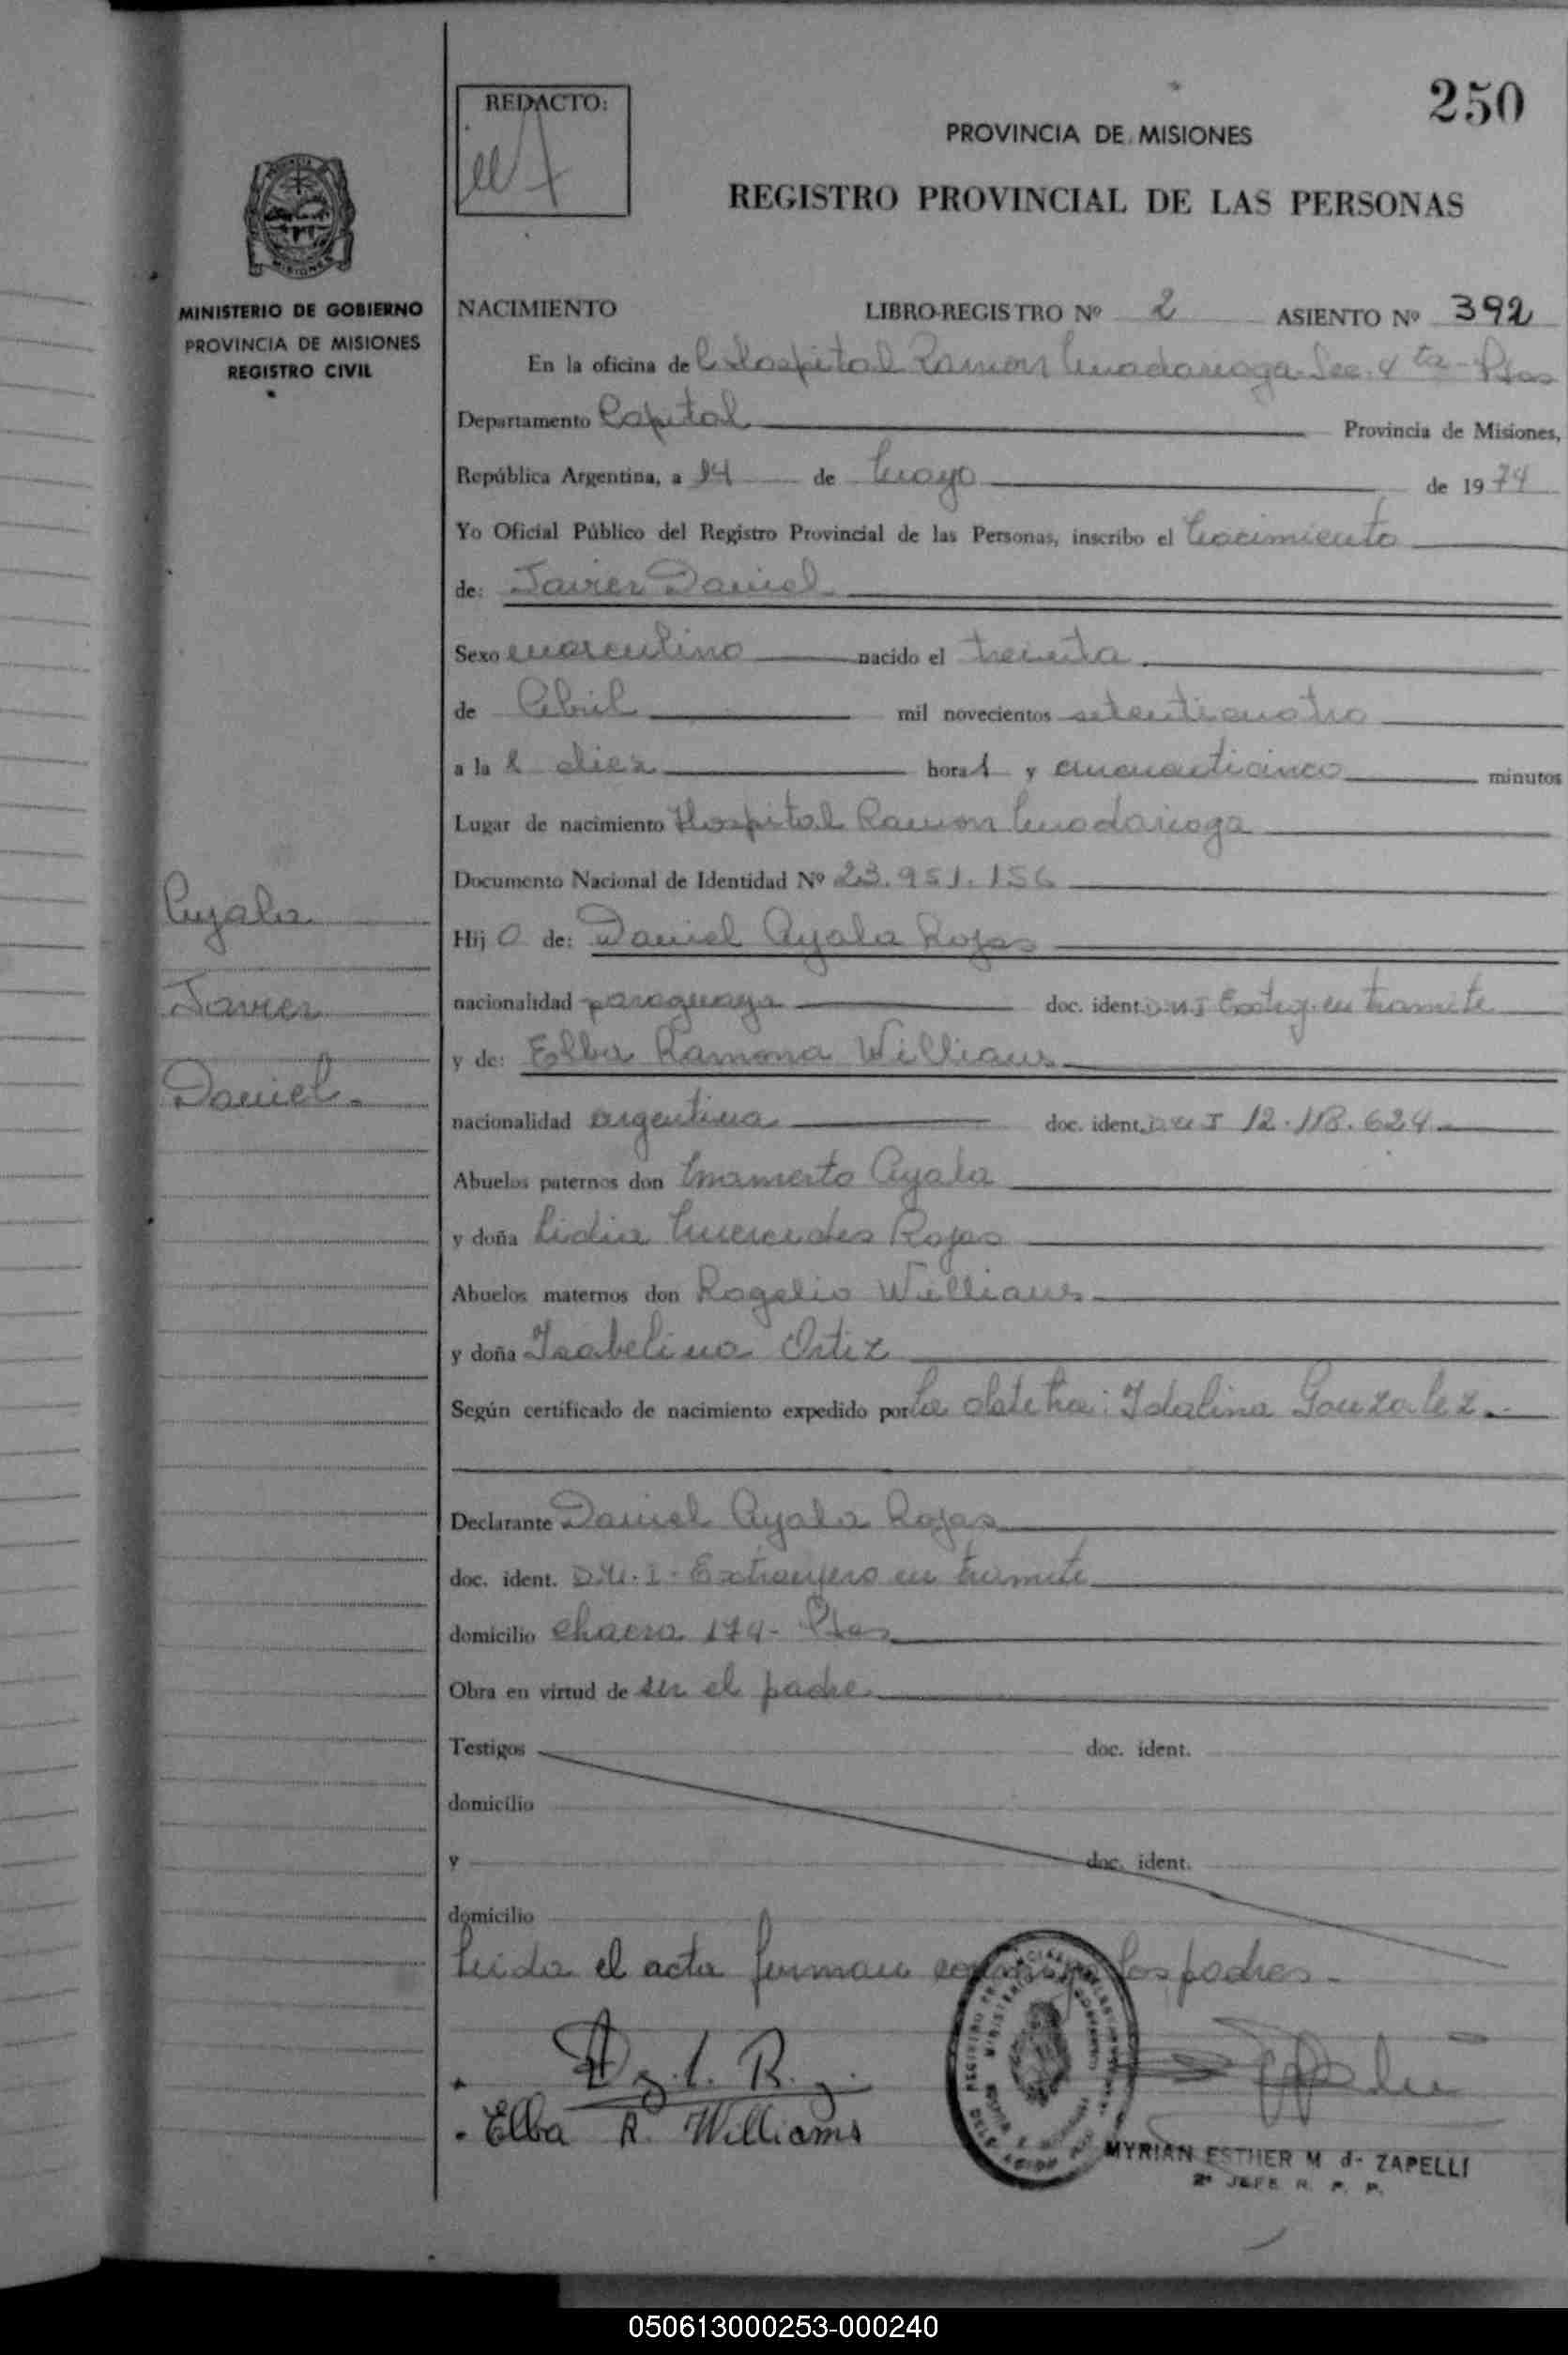 250
REDACTO:
PROVINCIA DE MISIONES
REGISTRO PROVINCIAL DE LAS PERSONAS
MISIONES
MINISTERIO DE GOBIERNO
PROVINCIA DE MISIONES
REGISTRO CIVIL
NACIMIENTO LIBRO-REGISTRO Nº 2 ASIENTO Nº 392
En la oficina de Hospital Ramon Madariaga Sec. 4ta - Pdas
Departamento Capital Provincia de Misiones,
República Argentina, a 14 de Mayo de 1974
Yo Oficial Público del Registro Provincial de las Personas, inscribo el Nacimiento
de: Javier Daniel
Sexo masculino nacido el treinta
de Abril mil novecientos setenticuatro
a las diez horas y cincuenticinco minutos
Lugar de nacimiento Hospital Ramon Madariaga
Documento Nacional de Identidad Nº 23.951.156
Hijo de: Daniel Ayala Rojas
nacionalidad paraguaya doc. ident. D.N.I Extrg. en tramite
y de: Elba Ramona Williams
nacionalidad argentina doc. ident. D.N.I 12.118.624
Abuelos paternos don Mamerto Ayala
y doña Lidia Mercedes Rojas
Abuelos maternos don Rogelio Williams
y doña Isabelina Ortiz
Según certificado de nacimiento expedido por la obstetra: Idalina Gonzalez.
Declarante Daniel Ayala Rojas
doc. ident. D.N.I. Extranjero en tramite
domicilio chacra 174- Pdas
Obra en virtud de ser el padre
Testigos doc. ident.
domicilio
y doc. ident.
domicilio
Leida el acta firman conmigo los padres.-
Elba R. Williams
MYRIAN ESTHER M de ZAPELLI
2º JEFE R. P. P.
Ayala
Javier
Daniel.
050613000253-000240